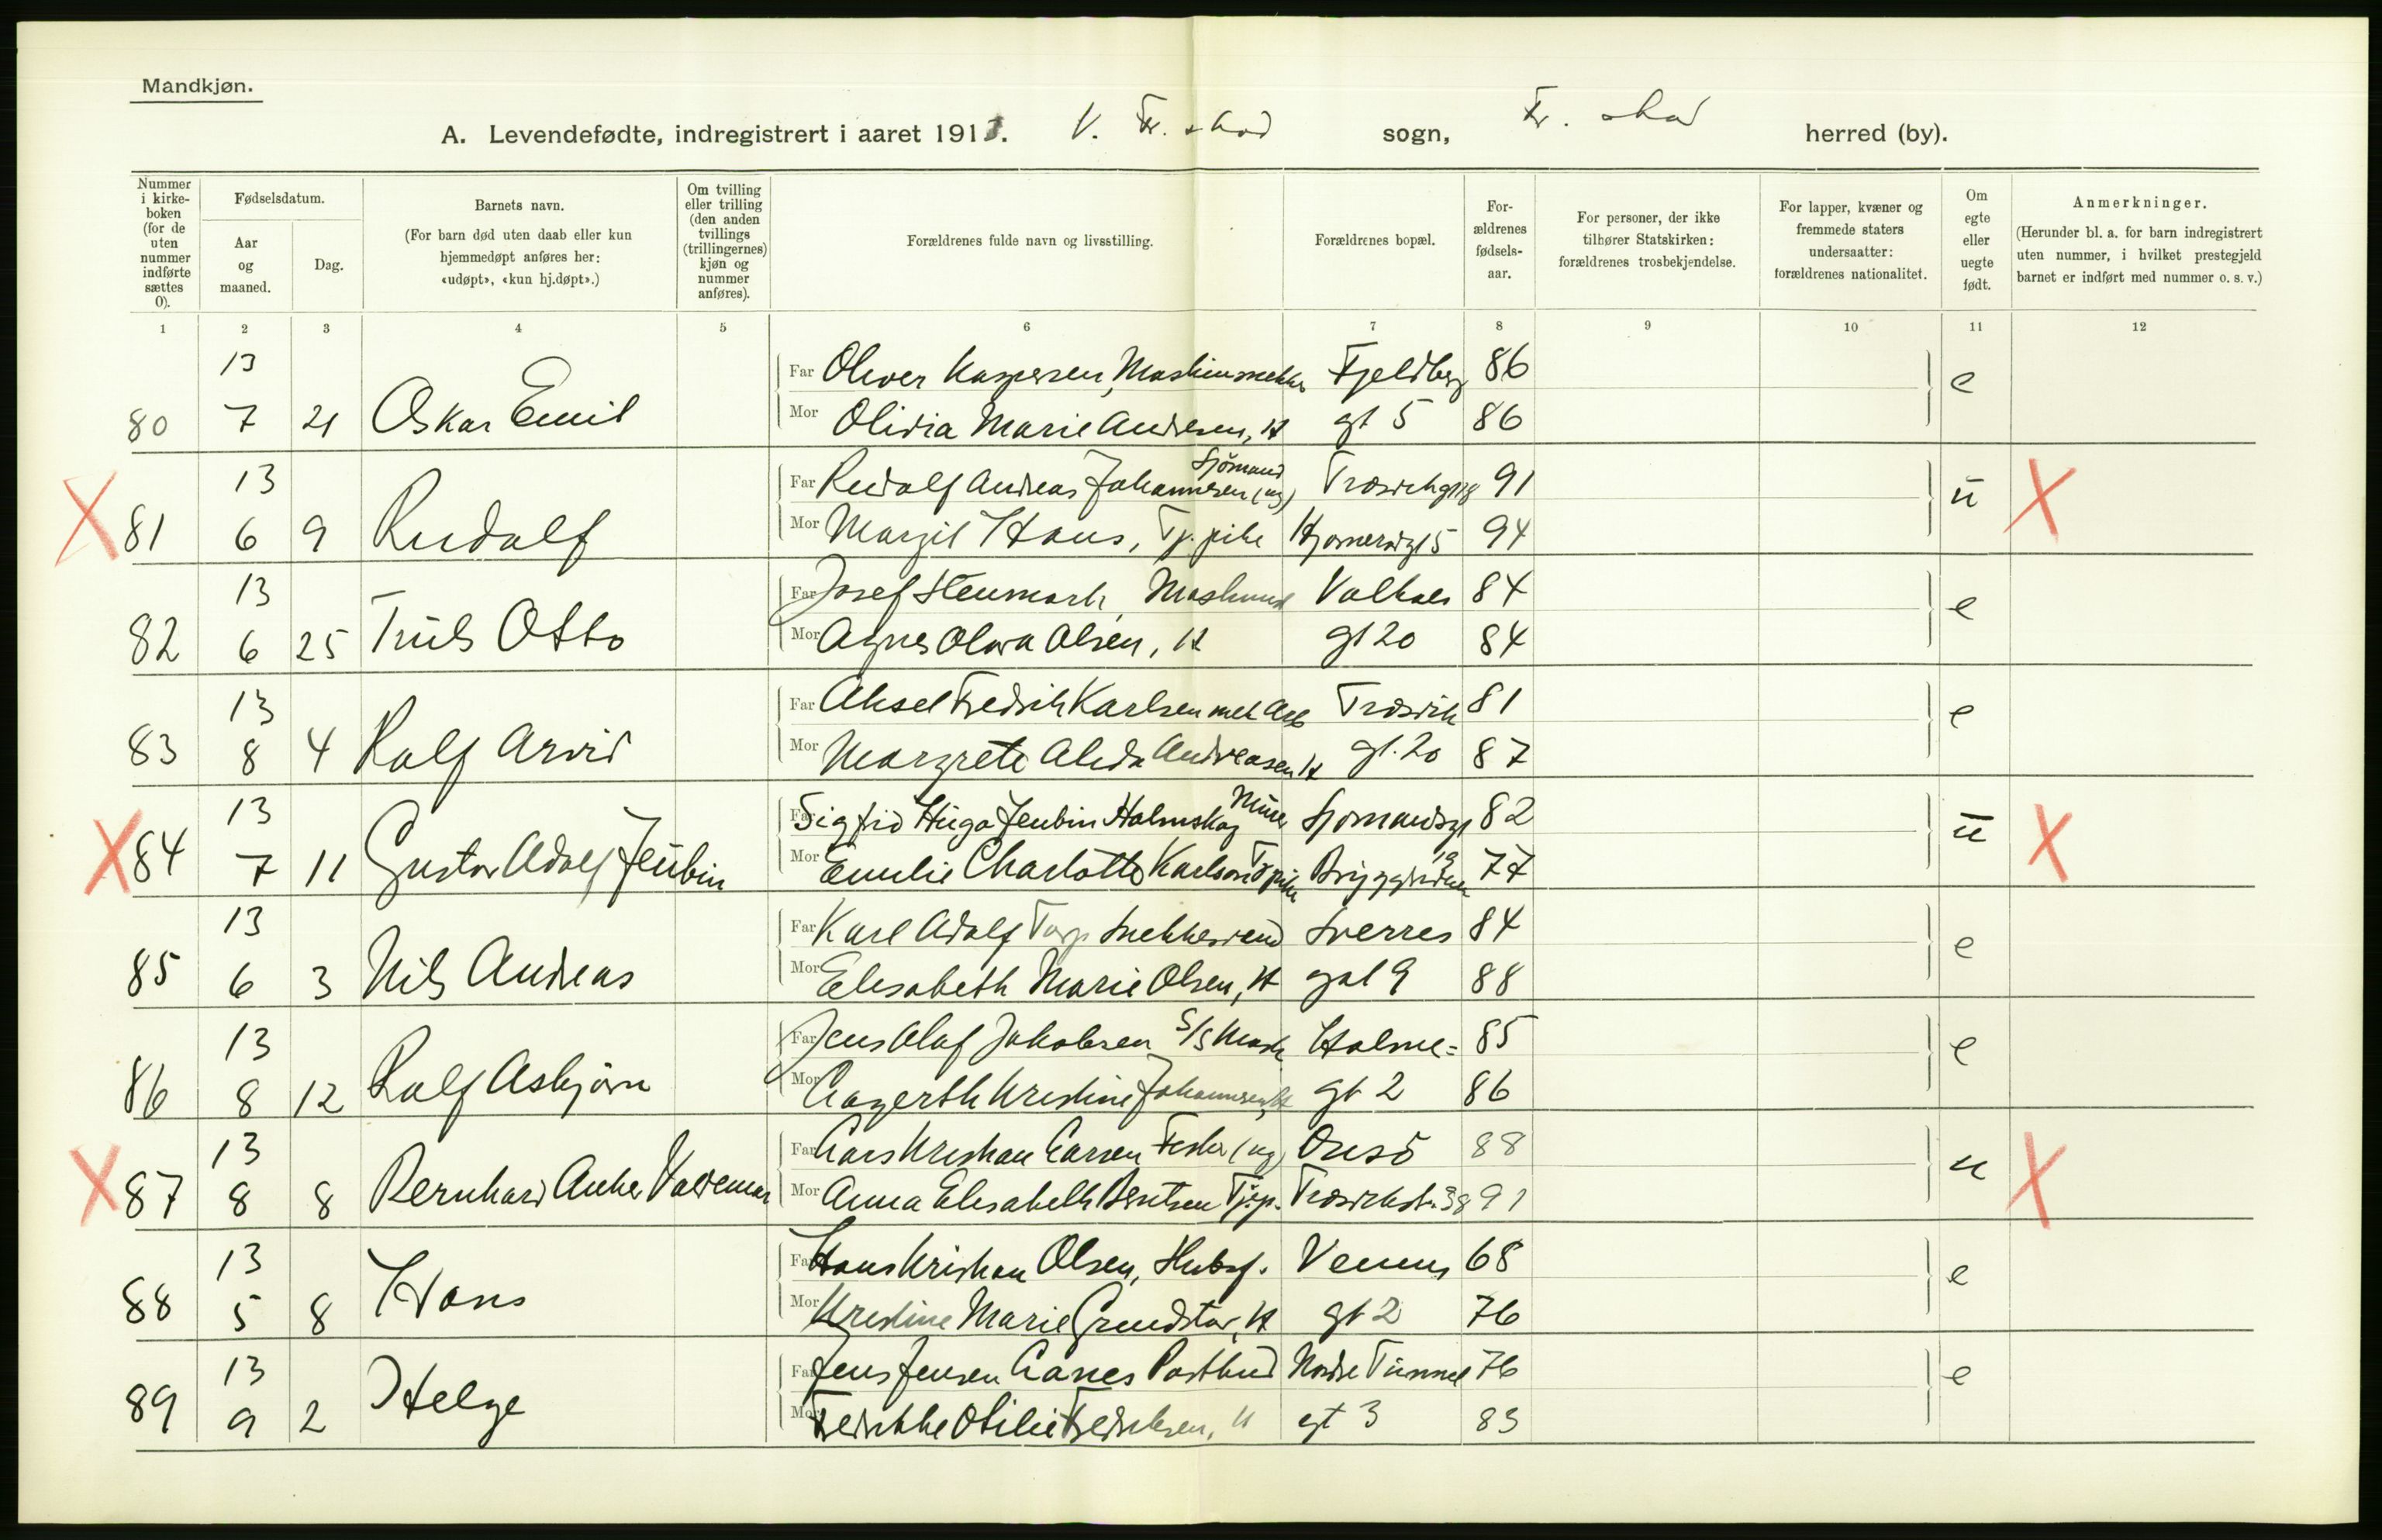 Mandkjøn.
A. Levendefødte, indregistrert i aaret 1913. V. Fr.stad sogn, Fr. stad herred (by).
Nummer i kirkeboken (for de uten nummer indførte sættes 0).
Fødselsdatum.
Aar og maaned.
Dag.
Barnets navn.
(For barn død uten daab eller kun hjemmedøpt anføres her: «udøpt», «kun hj.døpt».)
Om tvilling eller trilling (den anden tvillings (trillingernes) kjøn og nummer anføres).
Forældrenes fulde navn og livsstilling.
Forældrenes bopæl.
Forældrenes fødselsaar.
For personer, der ikke tilhører Statskirken: forældrenes trosbekjendelse.
For lapper, kvæner og fremmede staters undersaatter: forældrenes nationalitet.
Om egte eller uegte født.
Anmerkninger.
(Herunder bl. a. for barn indregistrert uten nummer, i hvilket prestegjeld barnet er indført med nummer o. s. v.)
1 2 3 4 5 6 7 8 9 10 11 12
13 Far Oliver Kaspersen, Maskinsnekker Fjeldberg 86 e
80 7 21 Oskar Emil Mor Olivia Marie Andresen, H gt 5 86
Sjömand
13 Far Rudolf Andreas Johannesen (ug) Trosvikgt 91 ü X
X 81 6 9 Rudolf Mor Margit Haus, Tj. pike 15 94
13 Far Josef Stenmark, Valhals 84 e
82 6 25 Truls Otto Mor Agnes Olava Olsen, H gt 20 84
13 Far Aksel Fredrik Karlsen mek Arb Trosvik 81 e
83 8 4 Rolf Arvid Mor Margrete Alida Andreasen H gt. 20 87
Murer
13 Far Sigfrid Hugo Jeubin Holmskog Sjomandsgt 82 ü X
X 84 7 11 Gustav Adolf Jeubin Mor Emilie Charlotte Karlson Tj pike 77
13 Far Karl Adolf Torp Snekkersvend Sverres 84 e
85 6 3 Nils Andreas Mor Elisabeth Marie Olsen, H gat 9 88
13 Far Jens Olaf Jakobsen S/S Mask Holme= 85 e
86 8 12 Rolf Asbjørn Mor Aagerth Kristine Johannesen, H gt 2 86
13 Far Lars Kristian Larsen Fisker (ug) Onsö 88 u X
X 87 8 8 Bernhard Anker Valdemar Mor Anna Elisabeth Berntsen Tj.p. Trosvikst. 38 91
13 Far Hans Kristian Olsen, Venus 68 e
88 5 8 Hans Mor Kristine Marie Grundstav, H gt 2 76
13 Far Jens Jensen Aanes Postbud Nordre Tunnel 76 e
89 9 2 Helge Mor Fredrikke Otilie Fredriksen, H gt 3 83